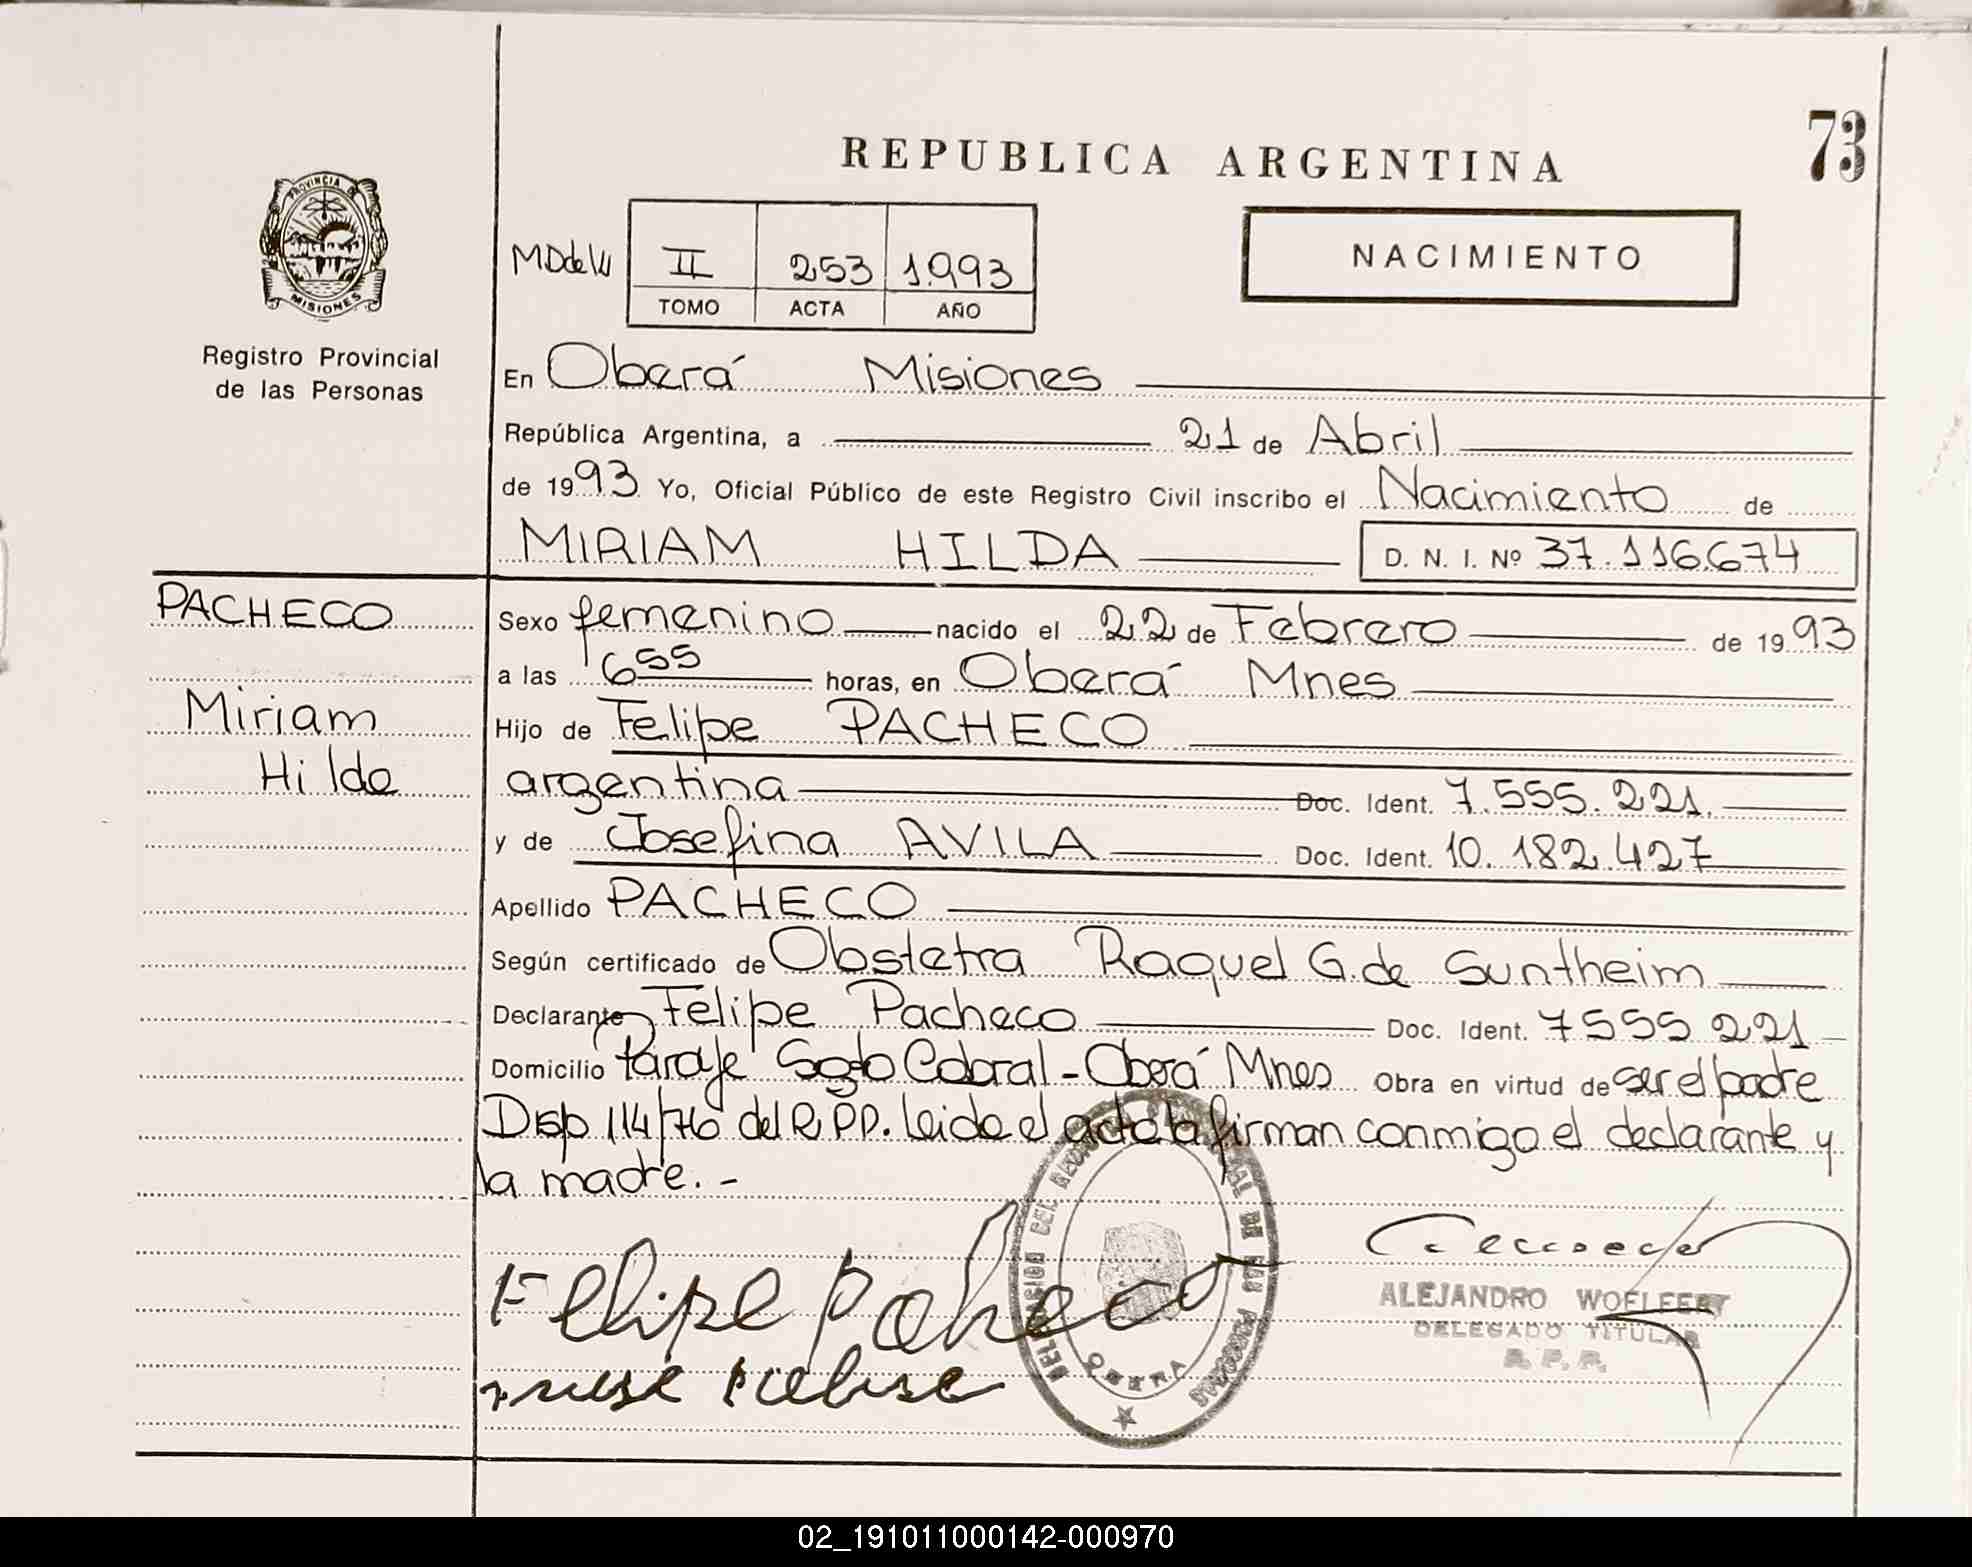 73
REPUBLICA ARGENTINA
PROVINCIA DE
MISIONES
Registro Provincial
de las Personas
II 253 1.993
TOMO ACTA AÑO
NACIMIENTO
En Oberá Misiones
República Argentina, a 21 de Abril
de 1993 Yo, Oficial Público de este Registro Civil inscribo el Nacimiento de
MIRIAM HILDA D. N. I. Nº 37.116.674
PACHECO
Miriam
Hilda
Sexo femenino nacido el 22 de Febrero de 1993
a las 6 55 horas, en Oberá Mnes
Hijo de Felipe PACHECO
argentina Doc. Ident. 7.555.221.
y de Josefina AVILA Doc. Ident. 10.182.427
Apellido PACHECO
Según certificado de Obstetra Raquel G. de Suntheim
Declarante Felipe Pacheco Doc. Ident. 7555221
Domicilio Paraje Sgto Cabral - Oberá Mnes Obra en virtud de ser el padre
Disp 114/76 del R.P.P. Leida el acta la firman conmigo el declarante y
la madre. -
Felipe Paheco
DELEGACION DEL REGISTRO PROVINCIAL DE LAS PERSONAS
OBERA
ALEJANDRO WOELFERT
DELEGADO TITULAR
R. P. P.
02_191011000142-000970